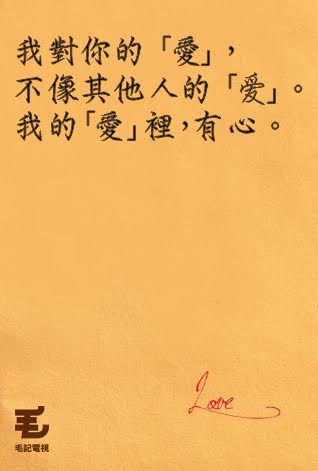 我對你的「愛」,
不像其他人的「爱」。
我的「愛」裡,有心。
Love
毛記電視